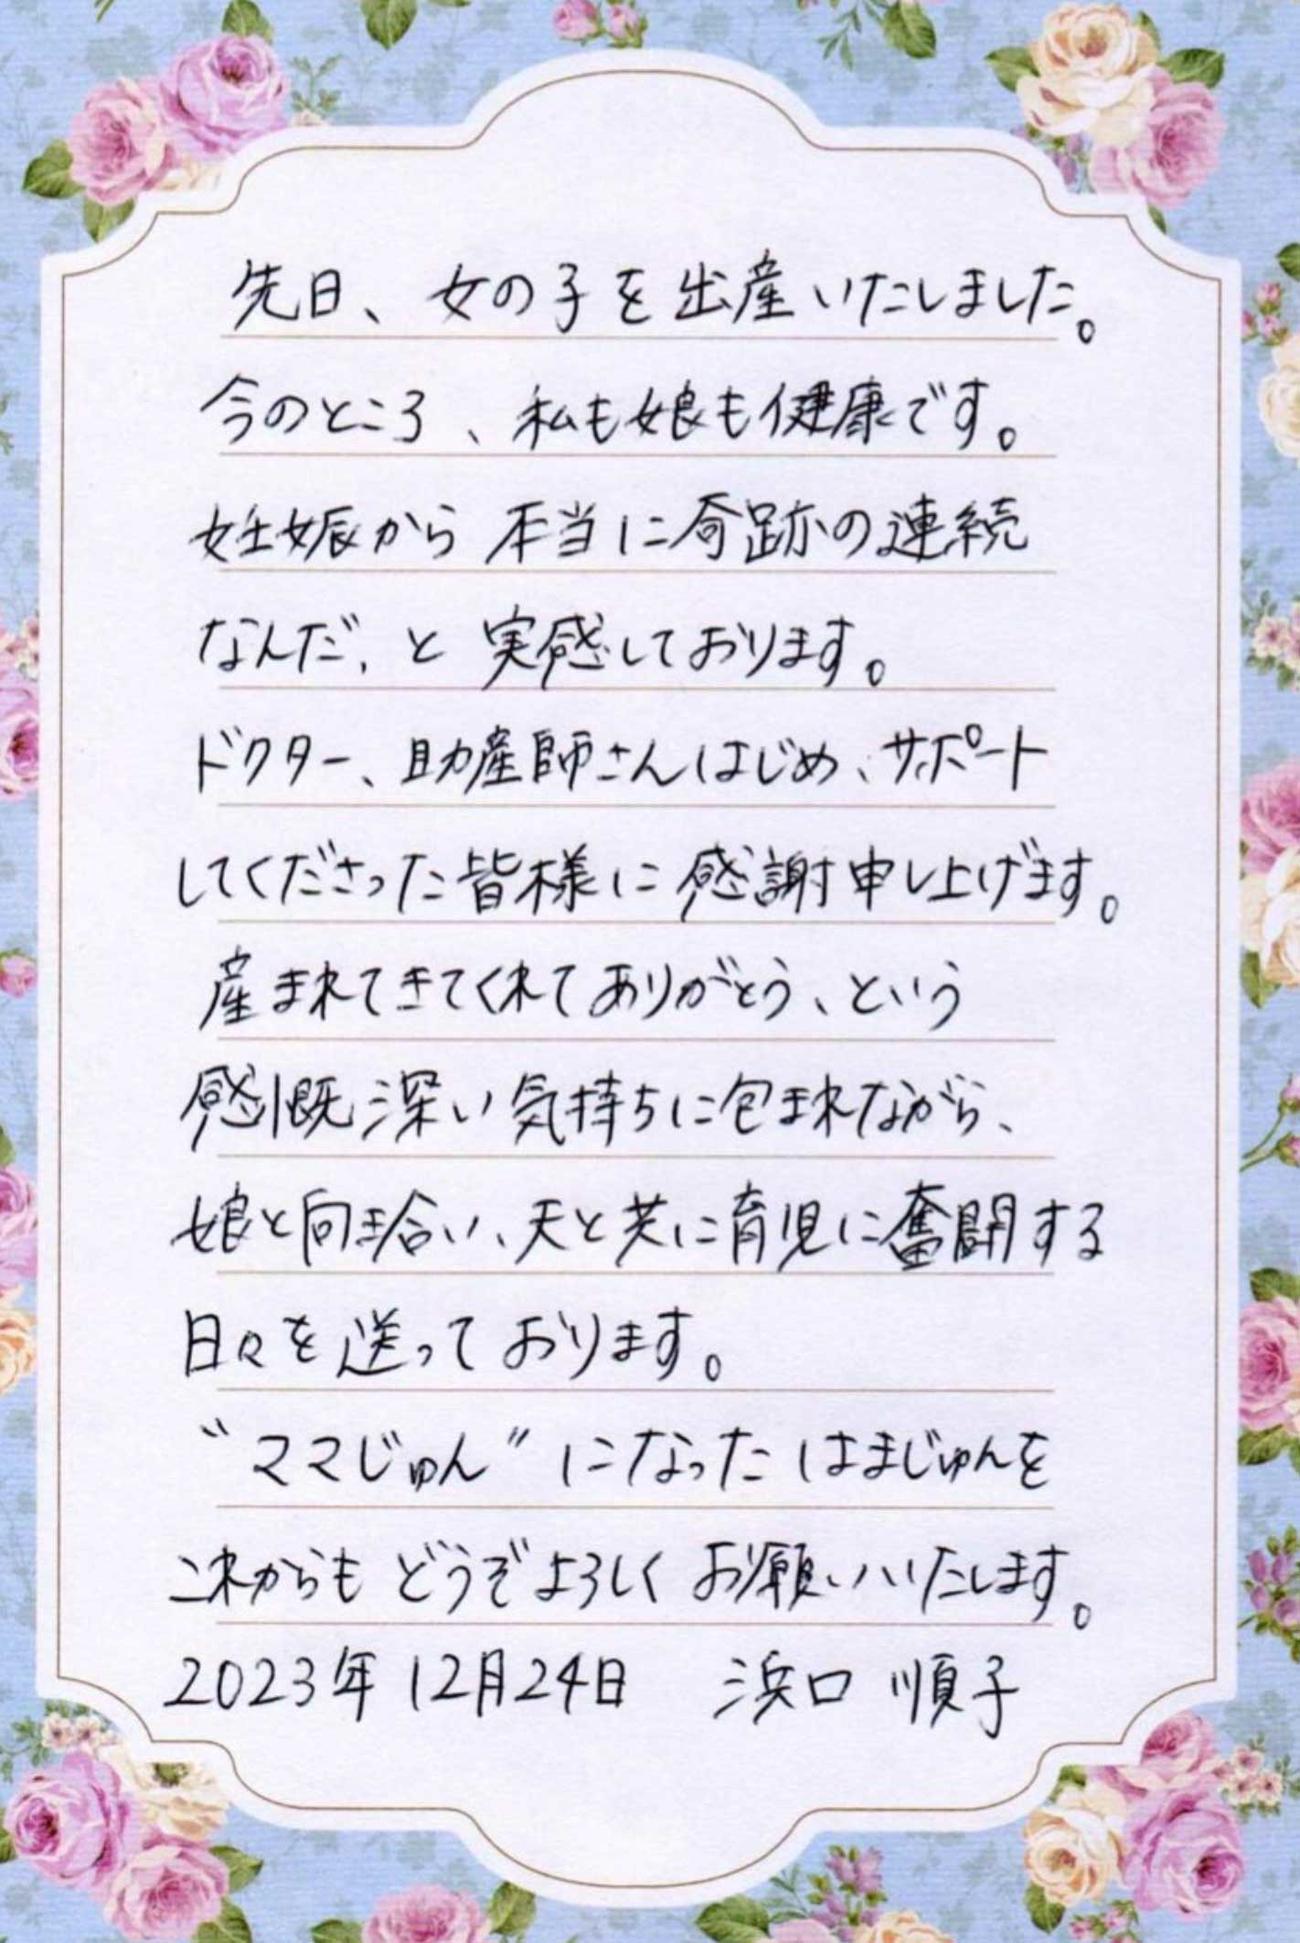 先日、女の子を出産いたしました。
今のところ、私も娘も健康です。
妊娠から本当に奇跡の連続
なんだ、と実感しております。
ドクター、助産師さんはじめ、サポート
してくださった皆様に感謝申し上げます。
産まれてきてくれてありがとう、という
感慨深い気持ちに包まれながら、
娘と向き合い、夫と共に育児に奮闘する
日々を送っております。
〝ママじゅん〟になったはまじゅんを
これからもどうぞよろしくお願いいたします。
2023年12月24日 浜口 順子